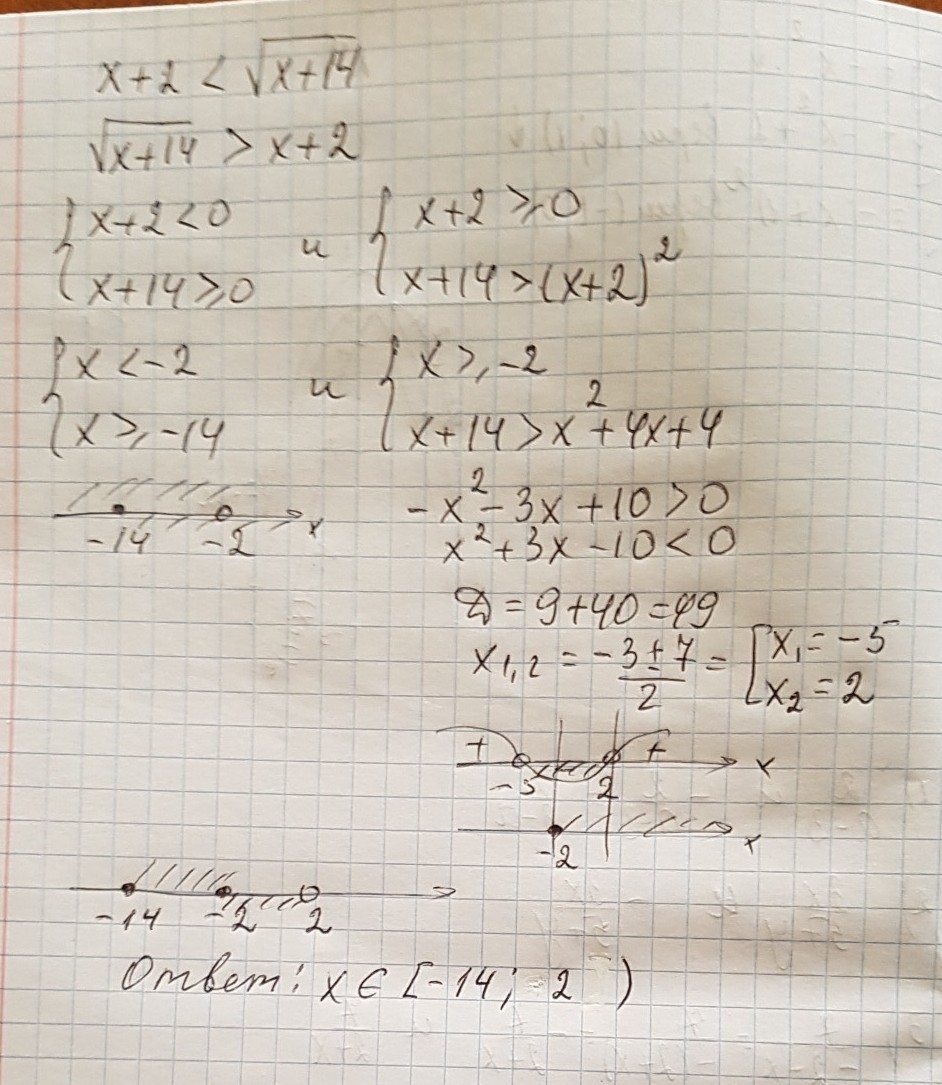 x+2 < √x+14
√x+14 > x+2
{ x+2<0 и { x+2 ≥ 0
{ x+14≥0 { x+14>(x+2)²
{ x<-2 и { x ≥ -2
{ x ≥ -14 { x+14>x²+4x+4
-x²-3x+10>0
-14 -2 x
x²+3x-10<0
D=9+40=49
x1,2 = -3±7/2 = [x₁=-5
x₂=2
+ + x
-5 2
-2 x
-14 -2 2
Ответ: x∈[-14; 2 )